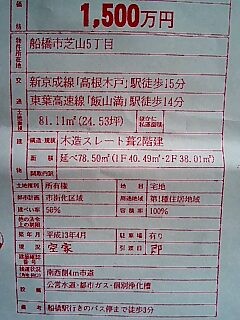 価格
1,500万円
物件所在地
船橋市芝山5丁目
交通
新京成線「高根木戸」駅徒歩15分
東葉高速線「飯山満」駅徒歩14分
面積
81.11㎡(24.53坪)
私道面積
払い済み
建物
構造・規模
木造スレート葺2階建
面積
延べ78.50㎡(1F40.49㎡・2F38.01㎡)
間取内訳
土地権利
所有権
地目
宅地
都市計画
市街化区域
用途地域
第1種住居地域
建ぺい率
50%
容積率
100%
築年月
平成13年4月
駐車場
有り
現況
空家
引渡
即
接道状況
南西側4m市道
設備
公営水道・都市ガス・個別浄化槽
備考
船橋駅行きのバス停まで徒歩3分